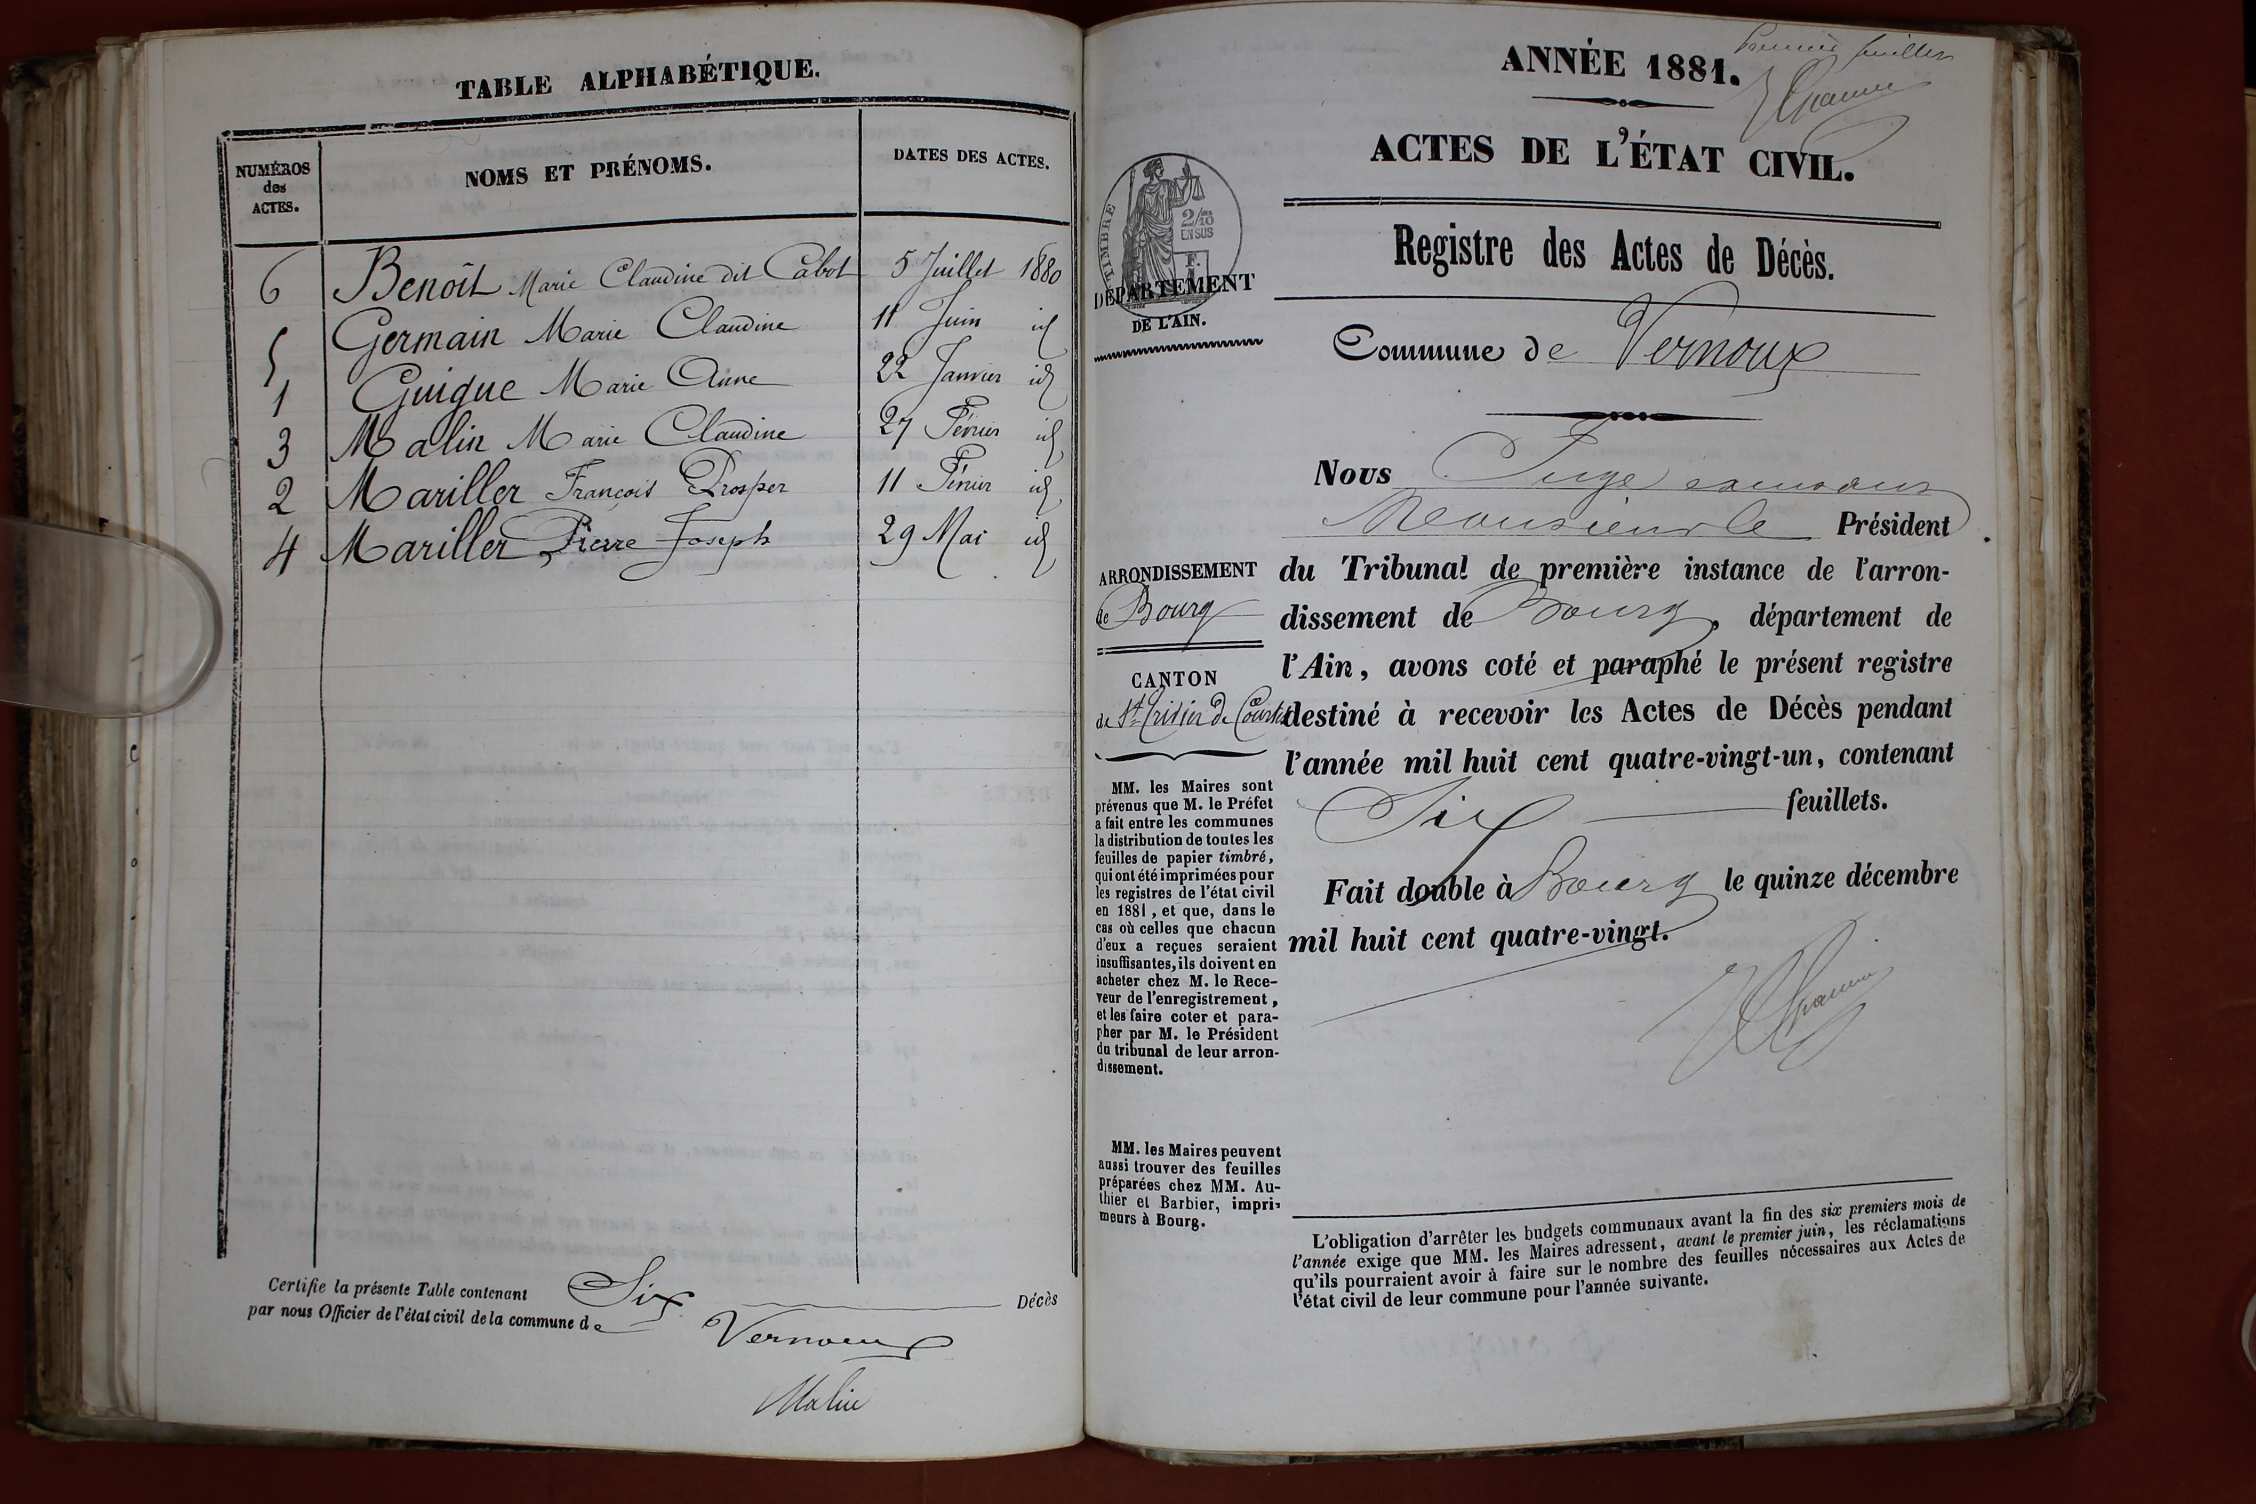 TABLE ALPHABÉTIQUE.
NUMÉROS
des
ACTES.
NOMS ET PRÉNOMS.
DATES DES ACTES.
6 Benoît Marie Claudine dit Cabot 5 Juillet 1880
5 Germain Marie Claudine 11 Juin id
1 Guigue Marie Anne 22 Janvier id
3 Malin Marie Claudine 27 Février id
2 Mariller François Prosper 11 Février id
4 Mariller Pierre Joseph 29 Mai id
Certifie la présente Table contenant Six Décès
par nous Officier de l'état civil de la commune de Vernoux
Malin
ANNÉE 1881.
Premier feuillet
ACTES DE L'ÉTAT CIVIL.
Registre des Actes de Décès.
TIMBRE
2/10
EN SUS
DÉPARTEMENT
DE L'AIN.
Commune de Vernoux
ARRONDISSEMENT
de Bourg
CANTON
de St Trivier de Courtes
MM. les Maires sont
prévenus que M. le Préfet
a fait entre les communes
la distribution de toutes les
feuilles de papier timbré,
qui ont été imprimées pour
les registres de l'état civil
en 1881, et que, dans le
cas où celles que chacun
d'eux a reçues seraient
insuffisantes, ils doivent en
acheter chez M. le Rece-
veur de l'enregistrement,
et les faire coter et para-
pher par M. le Président
du tribunal de leur arron-
dissement.
MM. les Maires peuvent
aussi trouver des feuilles
préparées chez MM. Au-
thier et Barbier, impri-
meurs à Bourg.
Nous Juge
Monsieur le Président
du Tribunal de première instance de l'arron-
dissement de Bourg, département de
l'Ain, avons coté et paraphé le présent registre
destiné à recevoir les Actes de Décès pendant
l'année mil huit cent quatre-vingt-un, contenant
Six feuillets.
Fait double à Bourg le quinze décembre
mil huit cent quatre-vingt.
L'obligation d'arrêter les budgets communaux avant la fin des six premiers mois de
l'année exige que MM. les Maires adressent, avant le premier juin, les réclamations
qu'ils pourraient avoir à faire sur le nombre des feuilles nécessaires aux Actes de
l'état civil de leur commune pour l'année suivante.